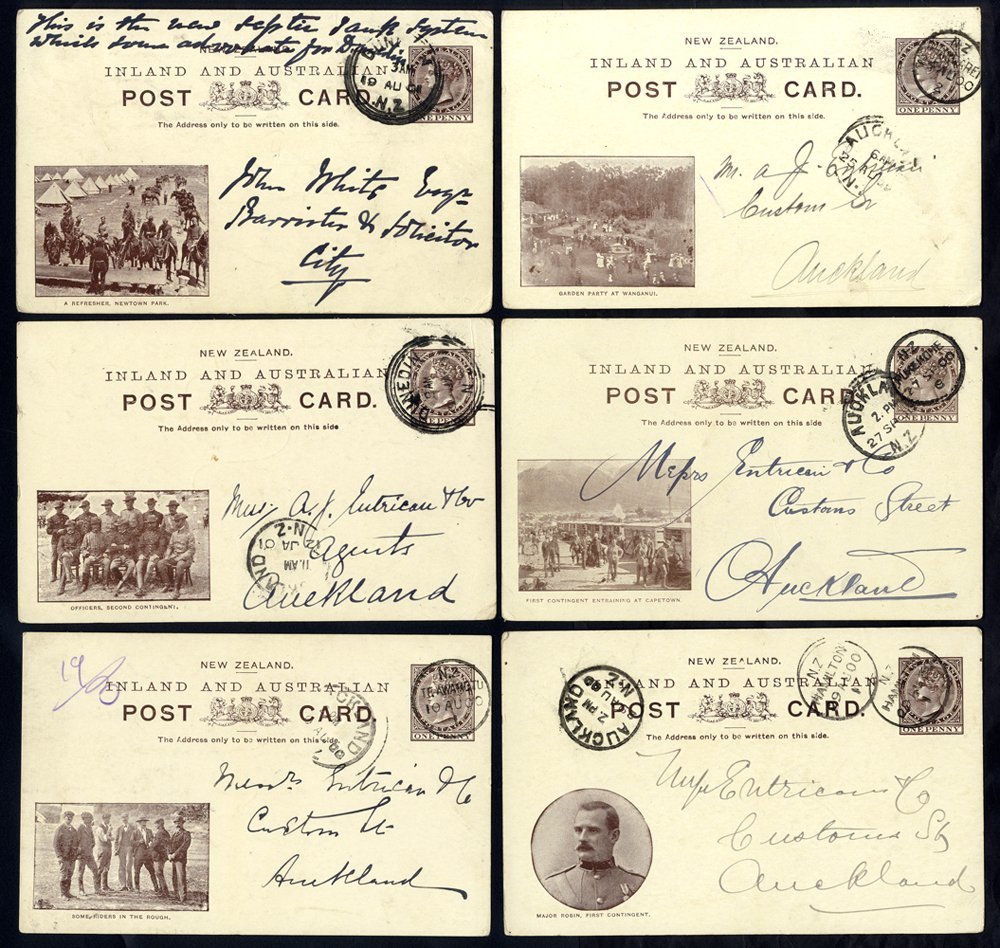 This is the new septic tank system
which some advocate for
NEW ZEALAND.
INLAND AND AUSTRALIAN
POST CARD.
The Address only to be written on this side.
ONE PENNY
3 AM
19 AU 01
N.Z
John White Esqr
Barrister & Solicitor
City
A REFRESHER, NEWTOWN PARK.
NEW ZEALAND.
INLAND AND AUSTRALIAN
POST CARD.
The Address only to be written on this side.
ONE PENNY
N.Z
AUCKLAND
N.Z
Mr. A. J. Entrican
Custom St
Auckland
GARDEN PARTY AT WANGANUI.
NEW ZEALAND.
INLAND AND AUSTRALIAN
POST CARD.
The Address only to be written on this side
DUNEDIN
Messrs A. J. Entrican & Co
Agents
Auckland
11 AM
JA 01
N.Z
OFFICERS, SECOND CONTINGENT.
NEW ZEALAND.
INLAND AND AUSTRALIAN
POST CARD.
The Address only to be written on this side.
ONE PENNY
N.Z
AUCKLAND
2. PM
27 SP
N.Z
Messrs Entrican & Co
Customs Street
Auckland
FIRST CONTINGENT ENTRAINING AT CAPETOWN.
19/
NEW ZEALAND.
INLAND AND AUSTRALIAN
POST CARD.
The Address only to be written on this side.
ONE PENNY
N.Z
TE AWAMUTU
10 AU 00
Messrs Entrican & Co
Custom St
Auckland
SOME RIDERS IN THE ROUGH.
NEW ZEALAND.
INLAND AND AUSTRALIAN
POST CARD.
The Address only to be written on this side.
ONE PENNY
N.Z
HAMILTON
AUCKLAND
2 PM
N.Z
Messrs Entrican & Co
Customs St
Auckland
MAJOR ROBIN, FIRST CONTINGENT.